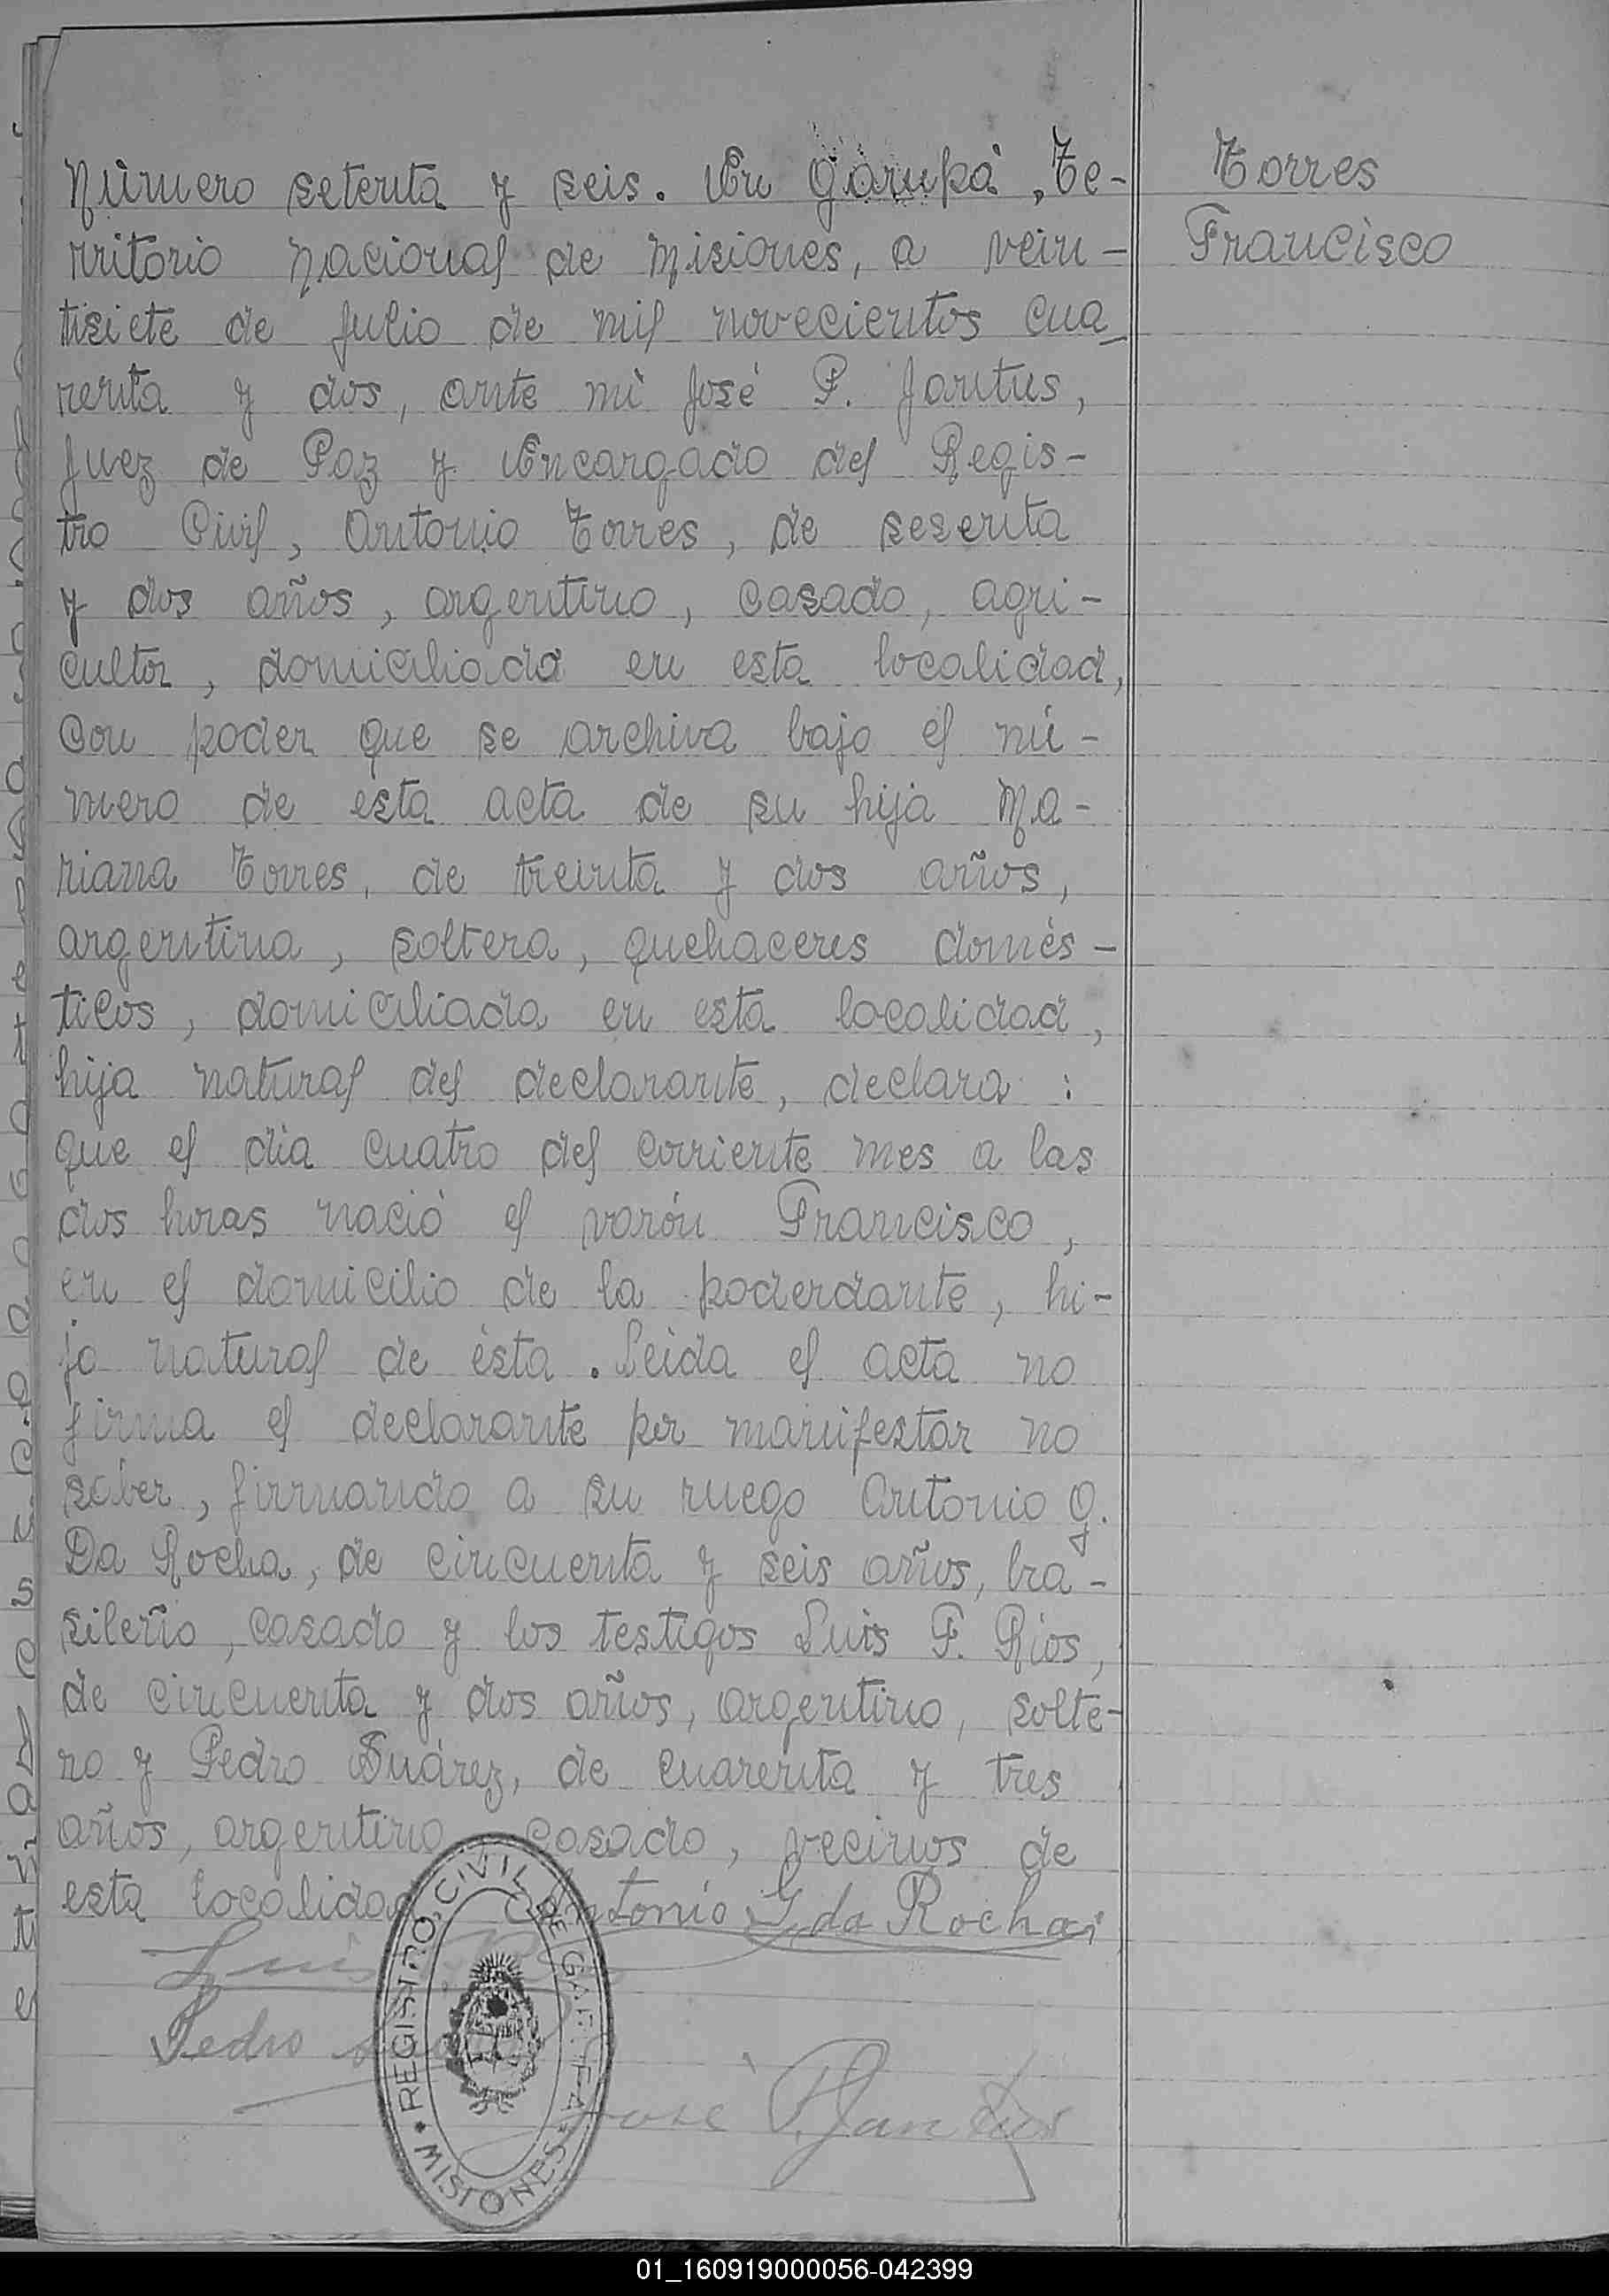 Torres
Francisco
Número setenta y seis. En Garupá, Te-
rritorio Nacional de Misiones, a vein-
tisiete de Julio de mil novecientos cua_
renta y dos, ante mi José P. Jantus,
Juez de Paz y Encargado del Regis-
tro Civil, Antonio Torres, de sesenta
y dos años, argentino, casado, agri-
cultor, domiciliado en esta localidad,
con poder que se archiva bajo el nú-
mero de esta acta de su hija Ma-
riana Torres, de treinta y dos años,
argentina, soltera, quehaceres domés-
ticos, domiciliada en esta localidad,
hija natural del declarante, declara :
que el día cuatro del corriente mes a las
dos horas nació el varón Francisco,
en el domicilio de la poderdante, hi-
jo natural de ésta. Leída el acta no
firma el declarante por manifestar no
saber, firmando a su ruego Antonio G.
Da Rocha, de cincuenta y seis años, bra-
sileño, casado y los testigos Luis F. Ríos,
de cincuenta y dos años, argentino, solte-
ro y Pedro Suárez, de cuarenta y tres
años, argentino, casado, vecinos de
esta localidad Antonio G. da Rocha
Luis
Pedro
José P. Jantus
REGISTRO CIVIL DE GARUPA
MISIONES
01_160919000056-042399